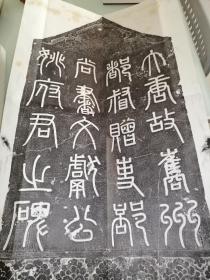 大唐故巂州
都督贈吏部
尚書文獻公
姚府君之碑